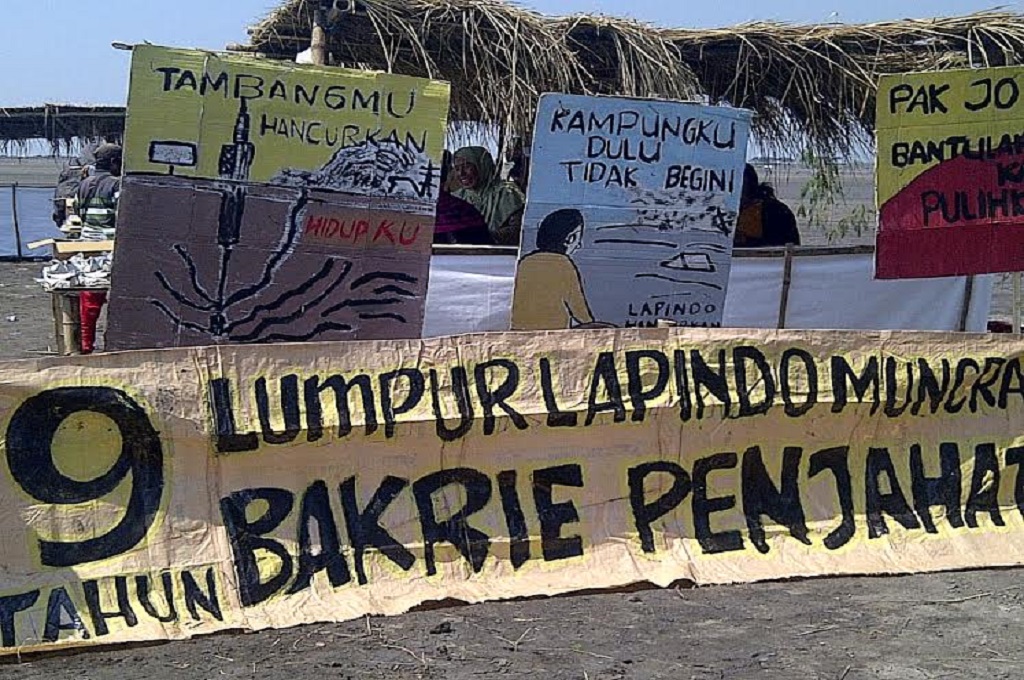 TAMBANGMU
HANCURKAN
HIDUP KU
KAMPUNGKU
DULU
TIDAK BEGINI
LAPINDO
PAK JO
PULIHK
9
TAHUN
LUMPUR LAPINDO MUNCRA
BAKRIE PENJAHAT